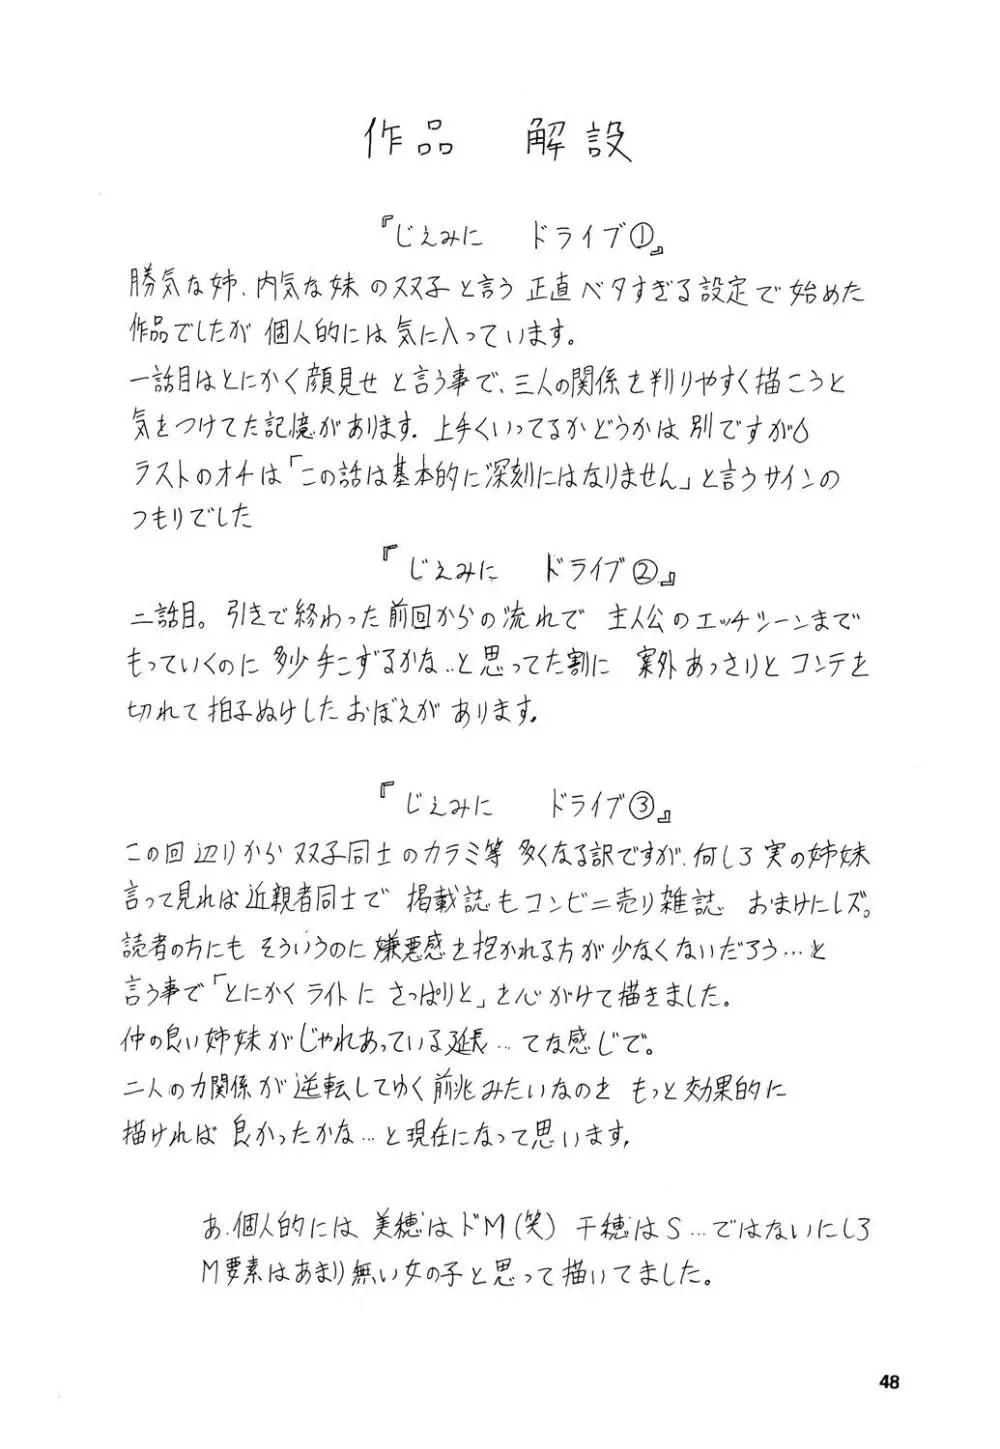 作品　解設
『じえみに　ドライブ①』
勝気な姉、内気な妹の双子と言う正直ベタすぎる設定で始めた
作品でしたが個人的には気に入っています。
一話目はとにかく顔見せと言う事で、三人の関係を判りやすく描こうと
気をつけてた記憶があります。上手くいってるかどうかは別ですが
ラストのオチは「この話は基本的に深刻にはなりません」と言うサインの
つもりでした
『じえみに　ドライブ②』
二話目。引きで終わった前回からの流れで主人公のエッチシーンまで
もっていくのに多少手こずるかな‥と思ってた割に案外あっさりとコンテを
切れて拍子ぬけしたおぼえがあります。
『じえみに　ドライブ③』
この回辺りから双子同士のカラミ等多くなる訳ですが、何しろ実の姉妹
言って見れば近親者同士で掲載誌もコンビニ売り雑誌おまけにレズ。
読者の方にもそういうのに嫌悪感を抱かれる方が少なくないだろう…と
言う事で「とにかくライトにさっぱりと」を心がけて描きました。
仲の良い姉妹がじゃれあっている延長…てな感じで。
二人の力関係が逆転してゆく前兆みたいなのをもっと効果的に
描ければ良かったかな…と現在になって思います。
あ、個人的には美穂はドM(笑)千穂はS…ではないにしろ
M要素はあまり無い女の子と思って描いてました。
48